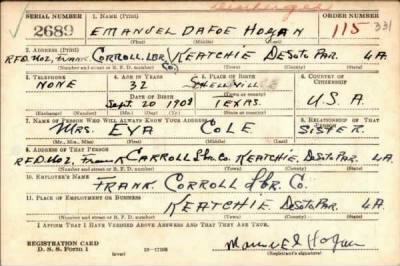 SERIAL NUMBER 1. NAME (Print) ORDER NUMBER
2689 EMANUEL DAFOE HOGAN 115 331
(First) (Middle) (Last)
2. ADDRESS (Print)
R.F.D. No 2, Frank Corroll, Lbr. Co. KEATCHIE DeSoto Par. LA
(Number and street or R. F. D. number) (Town) (County) (State)
3. TELEPHONE 4. AGE IN YEARS 5. PLACE OF BIRTH 6. COUNTRY OF CITIZENSHIP
NONE 32 SHELLVILLE
DATE OF BIRTH (Town or county)
Sept. 20 1908 TEXAS. U.S.A
(Exchange) (Number) (Mo.) (Day) (Yr.) (State or country)
7. NAME OF PERSON WHO WILL ALWAYS KNOW YOUR ADDRESS 8. RELATIONSHIP OF THAT PERSON
MRS. EVA COLE SISTER.
(Mr., Mrs., Miss) (First) (Middle) (Last)
9. ADDRESS OF THAT PERSON
R.F.D. No 2, Frank CARROLL Lbr. Co. KEATCHIE, DeSoto Par. LA.
(Number and street or R. F. D. number) (Town) (County) (State)
10. EMPLOYER'S NAME
FRANK. Corroll Lbr. Co.
11. PLACE OF EMPLOYMENT OR BUSINESS
KEATCHIE DeSoto Par. LA
(Number and street or R. F. D. number) (Town) (County) (State)
I AFFIRM THAT I HAVE VERIFIED ABOVE ANSWERS AND THAT THEY ARE TRUE.
REGISTRATION CARD
D. S. S. Form 1 (over) Manuel Hogan
(Registrant's signature)